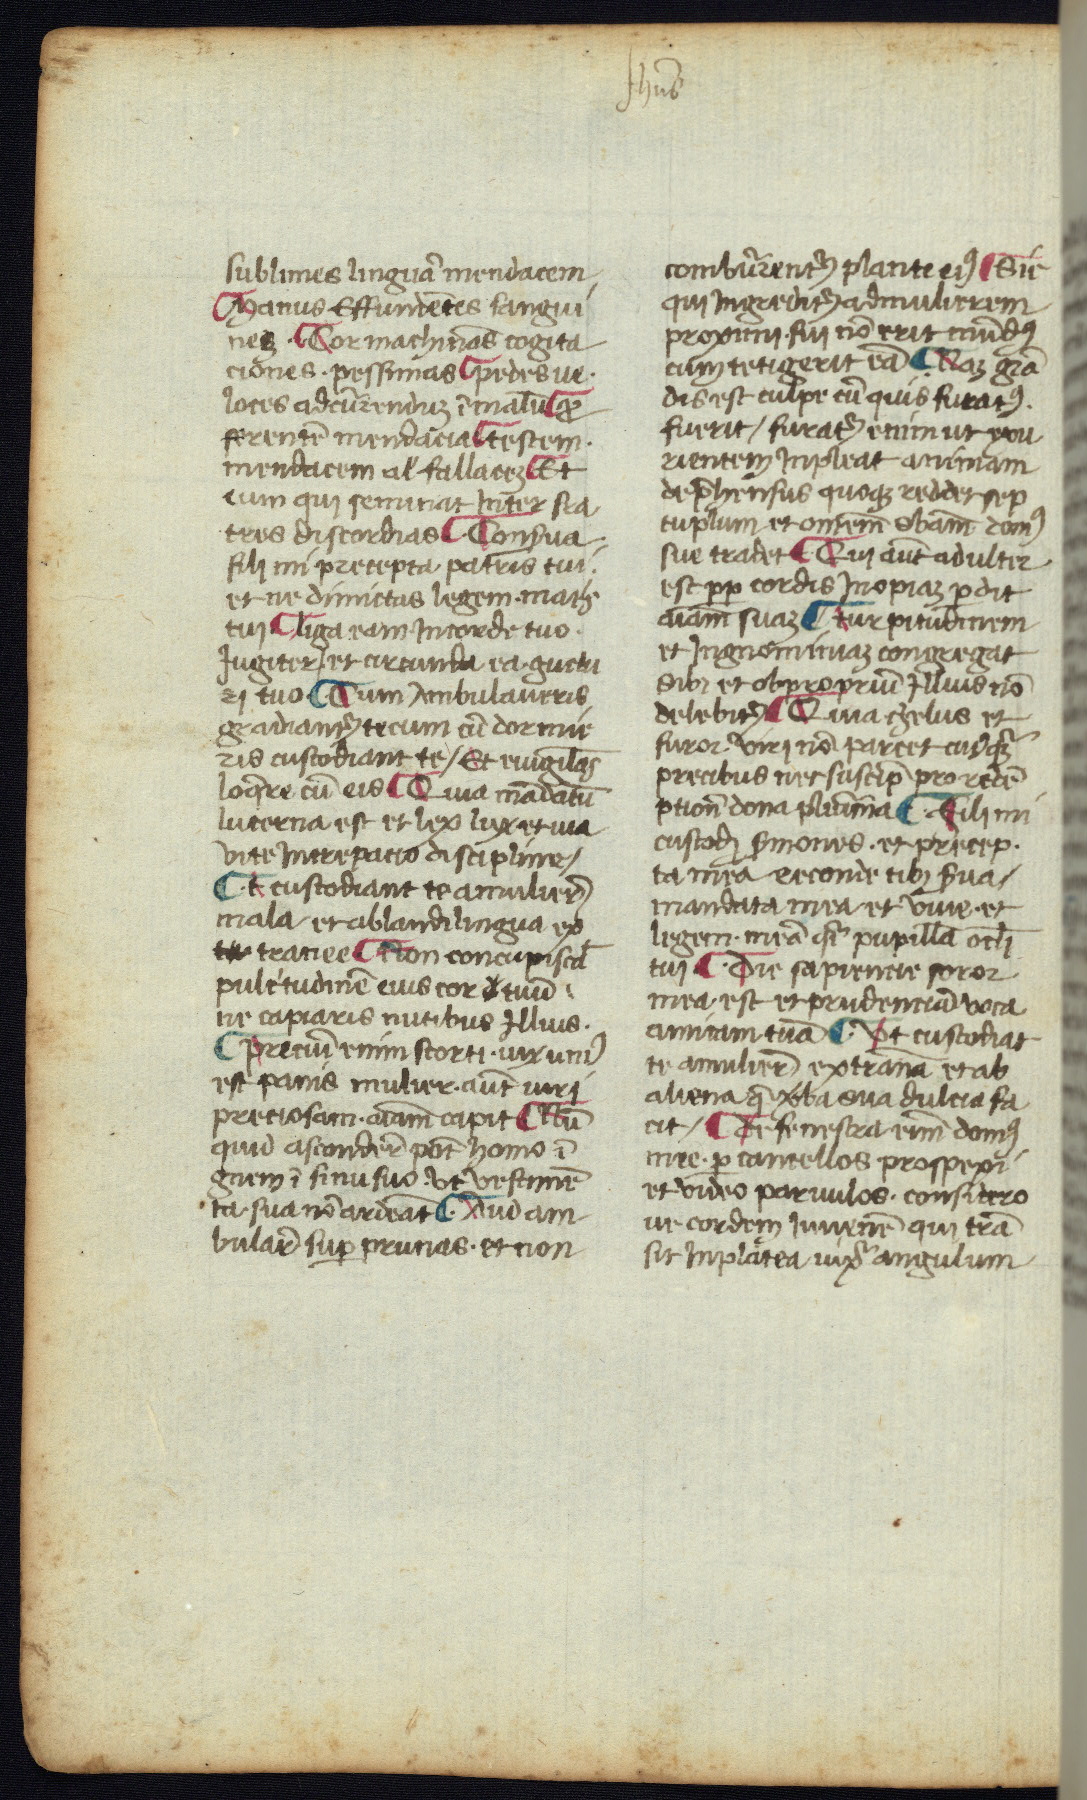 Jhus̄
sublimes linguā mendacem
¶ Manus Effundētes sangui
nez · ¶ Cor machinās cogita
ciones · pessimas ¶ pedes ve·
loces adcūrenduz ī malū ¶ ꝓ
ferentē mendacia ¶ testem·
mendacem al' fallacez ¶ Et
eum qui seminat Inter fra
tres discordias ¶ · Conserua
fili mi precepta patris tui·
et ne dimictas legem matr̄
tui ¶ liga eam Incorde tuo·
Jugiter et circunda ea guctu
ri tuo · ¶ Cum Ambulaueris
gradiant᷑ tecum cū dormie
ris custodiant te / Et euigilās
loqre cū eis ¶ Quia mādatū
lucerna est et lex lux et uia
vite Increpacio discipline /
¶ · t custodiant te amulier̄
mala et ablandilingua ex
tranee ¶ Non concupiscat
pulc̄tudinē eius cor tuū ·
ne capiaris nutibus Jllius ·
¶ preciū enim scorti · uix uni᷒
est panis mulier · aūt uiri
preciosam · aīam capit ¶ Nū
quid asconder̄ pōt homo ī
gnem ī sinu suo vt vestimē
ta sua nō ardeāt ¶ · Aud am
bular̄ suꝑ prunas · et non
combūrent᷑ plante ei᷒ ¶ Sic
qui Ingredit᷑ admulierem
proximi · sui nō erit mūd᷒
cum tetigerit eā ¶ Naz grā
dis est culpe cū quis furat᷒ ·
fuerit / furat᷑ enim ut exu
rientem Inpleat animam
dep̄hensus quoqz reddet sep
tuplum et omēm sbām̄ dom᷒
sue tradet ¶ Qui aūt adulter
est ꝓp cordis Inopiaz ꝑdit
aīam suaz ¶ turpitudinem
et Ingnominiaz congregat
sibi et obproprīū Jllius nō
delebit᷑ ¶ Quia çelus et
furor · viri nō parcet cui᷒q᷑
precibus nec suscip̄ pro redē
ptioñ dona plurīma ¶ · Fili mi
custodi s̄mones · et precep·
ta mea reconde tibi s̄ua /
mandata mea et viue · et
legem · meā sī pupillā ocl̄i
tui ¶ · Dic sapiencie soror
mea · est et prudenciā voca
amicam tuā ¶ · Vt custodiat
te amulier̄ extrānā et ab
aliena q̄ v̄ba sua dulcia fa
cit / ¶ De fenestra eīm dom᷒
mee · ꝑ cancellos prospexi
et video paruulos · considero
ue cordem Iuuenē qui trā
sit Inplatea iuxᵃ angulum